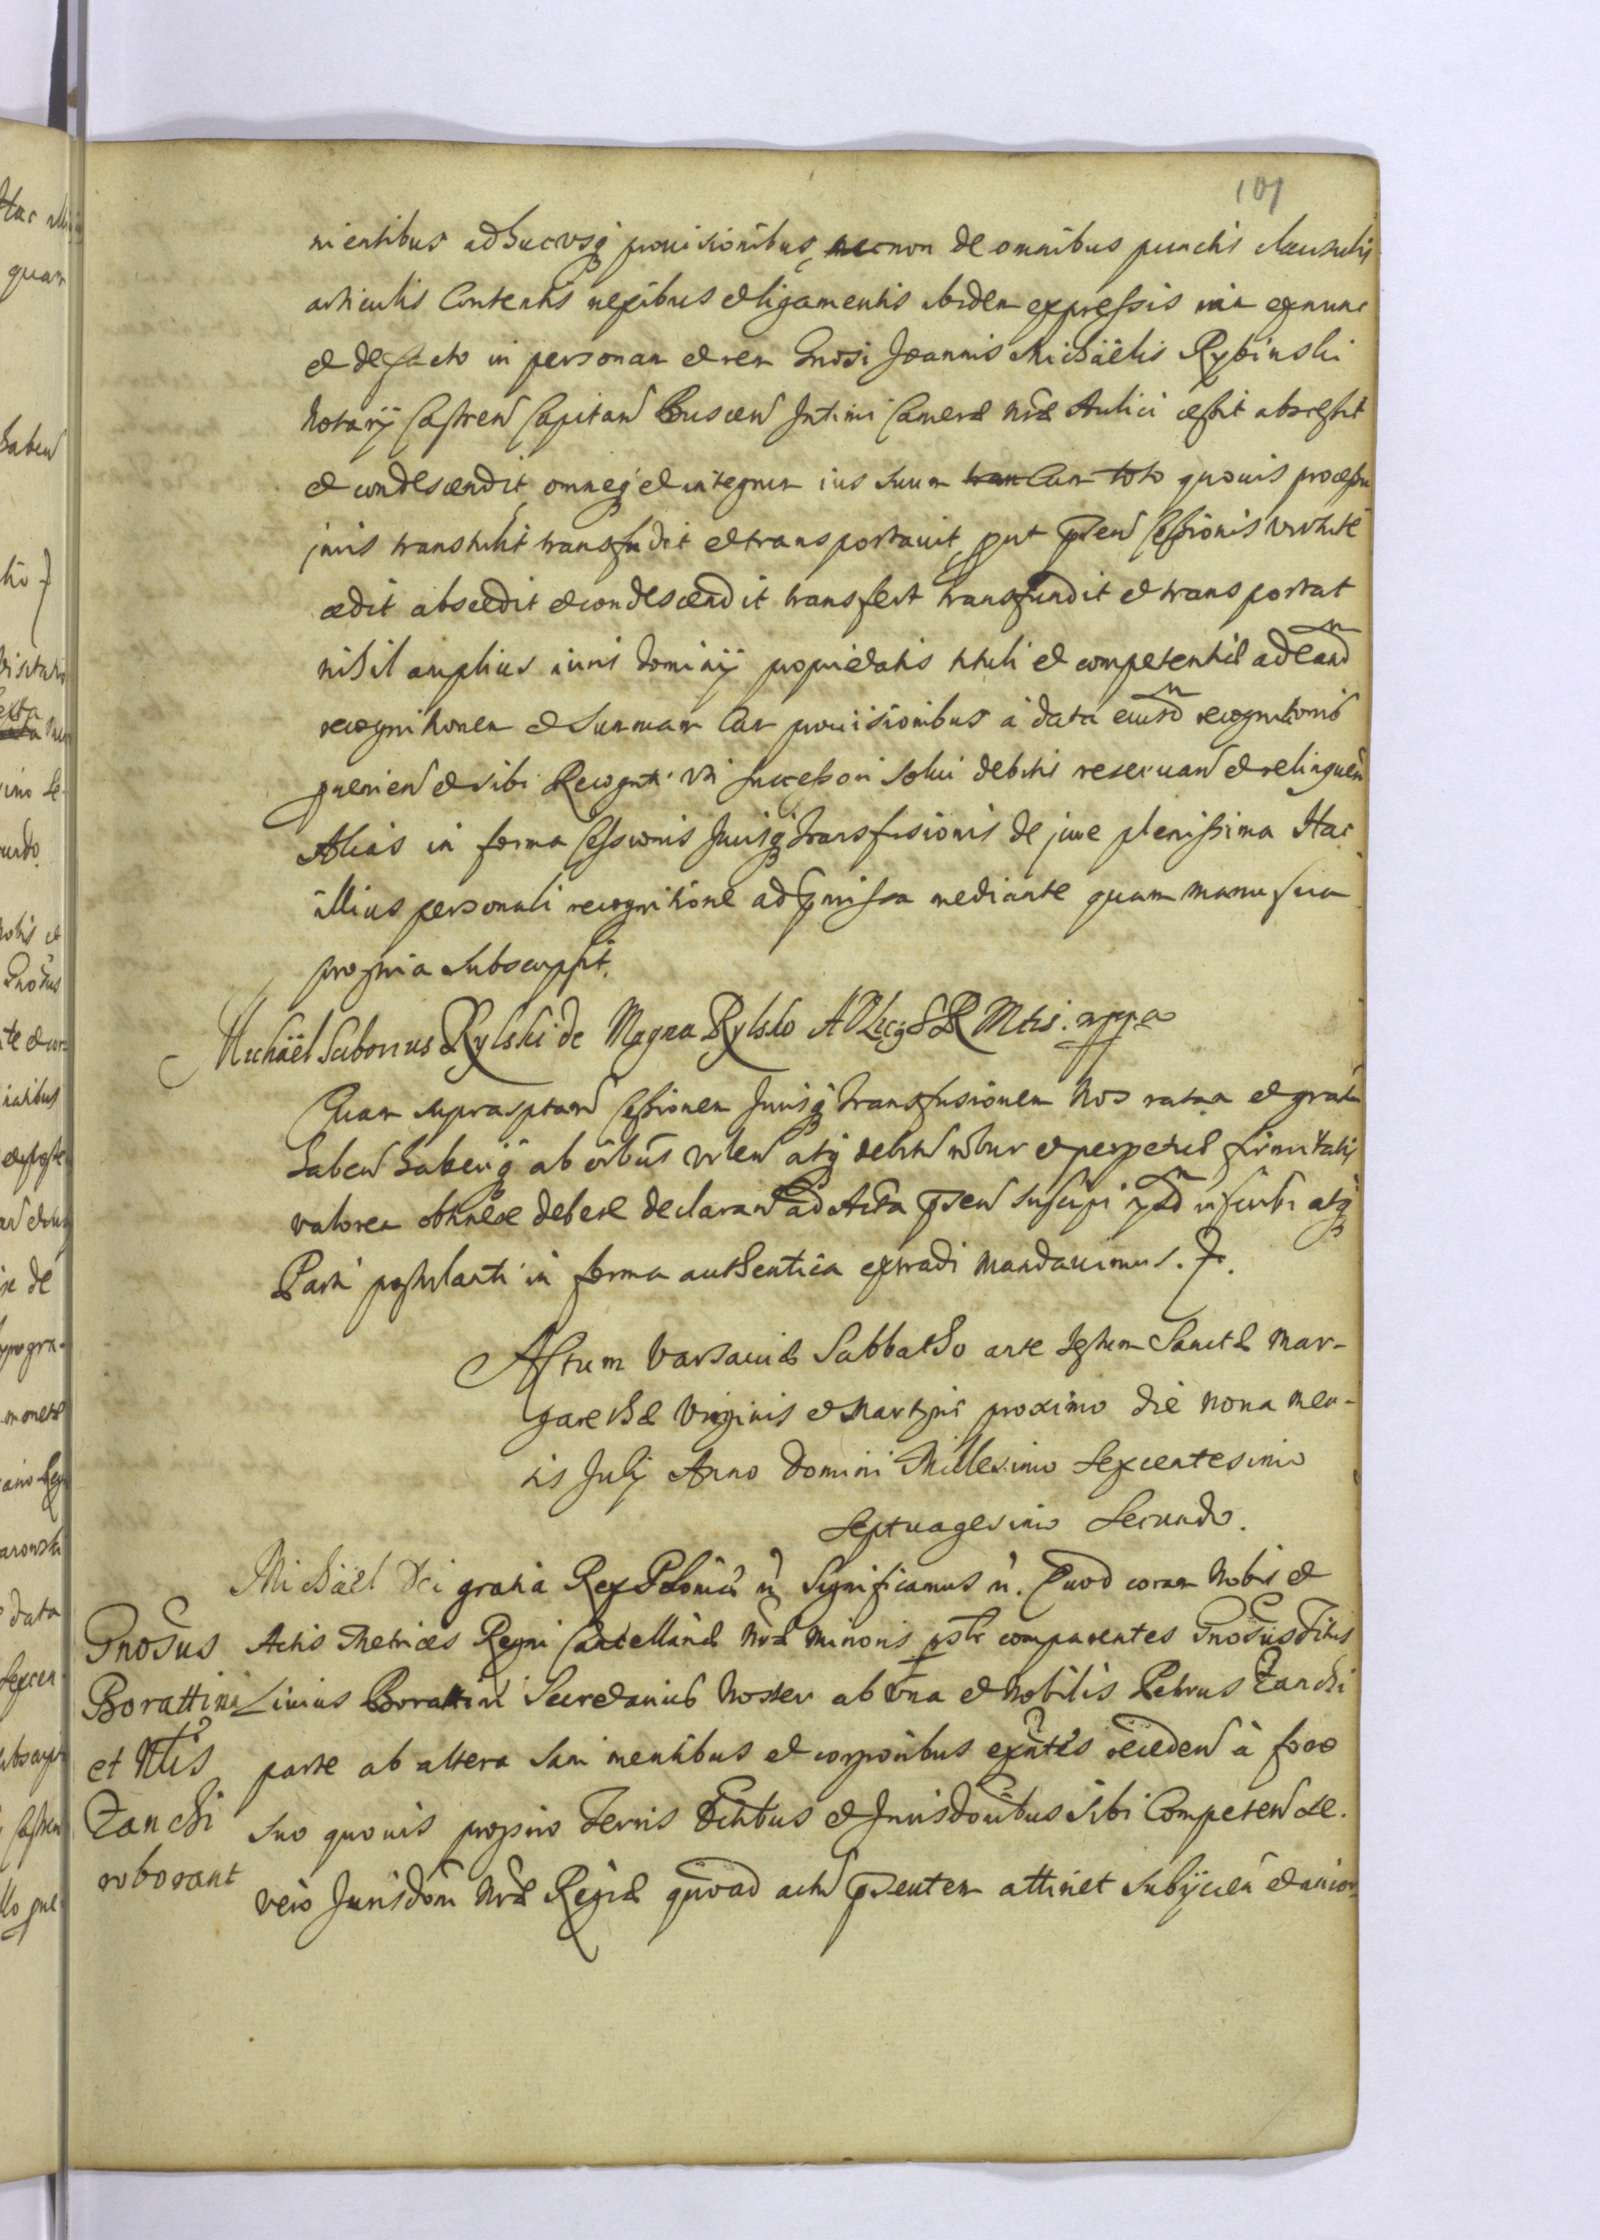 101
nientibus adhucusq prouisionibus, necnon de omnibus punctis clausulis
articulis Contentis nexibus et ligamentis ibidem expressis uti exnunc
et defacto in personam et rem Gnosi Joannis Michaëlis Rybinski
Notarÿ Castren Capitan Buscen Intimi Cameræ Nræ Aulici cessit abscessit
et condescendit omneq et integrum ius suum Cum toto quouis processu
iuris transtulit transfudit et transportauit, put psen Cessionis virtute
cedit abscedit et condescendit transfert transfundit et transportat
nihil amplius iuris dominÿ proprietatis tituli et competentiæ ad eand
recognitionem et summam Cum prouisionibus à data eiusd recognitionis
puenien et sibi Recognti uti successori solui debitis reseruan et relinquen
Alias in forma Cessionis Jurisq transfusionis de jure plenissima Hac
illius personali recognitione ad pmissa mediante quam manu sua
propria subscripsit.
Michaël Sciborius Rylski de Magna Rylsko S R Mtis. mppa
Quam suprascptam Cessionem Jurisq transfusionem Nos ratam et gratam
haben haberiq ab oibus volen atq debitu robur et perpetuæ firmitatis
valorem obtinere debere declaran ad Acta psen suscipi inscribi atq
Parti postulanti in forma authentica extradi mandauimus.
Actum Varsauiæ Sabbatho ante festum Sanctæ Mar-
garethæ Virginis et Martyris proximo die nona Men-
sis Julÿ Anno Domini Millesimo Sexcentesimo
Septuagesimo Secundo.
Michäel Dei gratia Rex Poloniæ Significamus Quod coram Nobis et
Gnosus
Borattini
et Nlis
Zanchi
roborant
Actis Metrices Regni Cancellariæ Nræ Minoris pslr comparentes Gnosus Titus
Liuius Borattini Secretarius Noster ab una et Nobilis Petrus Zanchi
parte ab altera sani mentibus et corporibus exntes receden à foro
suo quouis proprio Terris Ditibus et Jurisdonibus sibi Competen se.
vero Jurisdoni Nræ Regiæ quoad actu psentem attinet subÿcien et incor